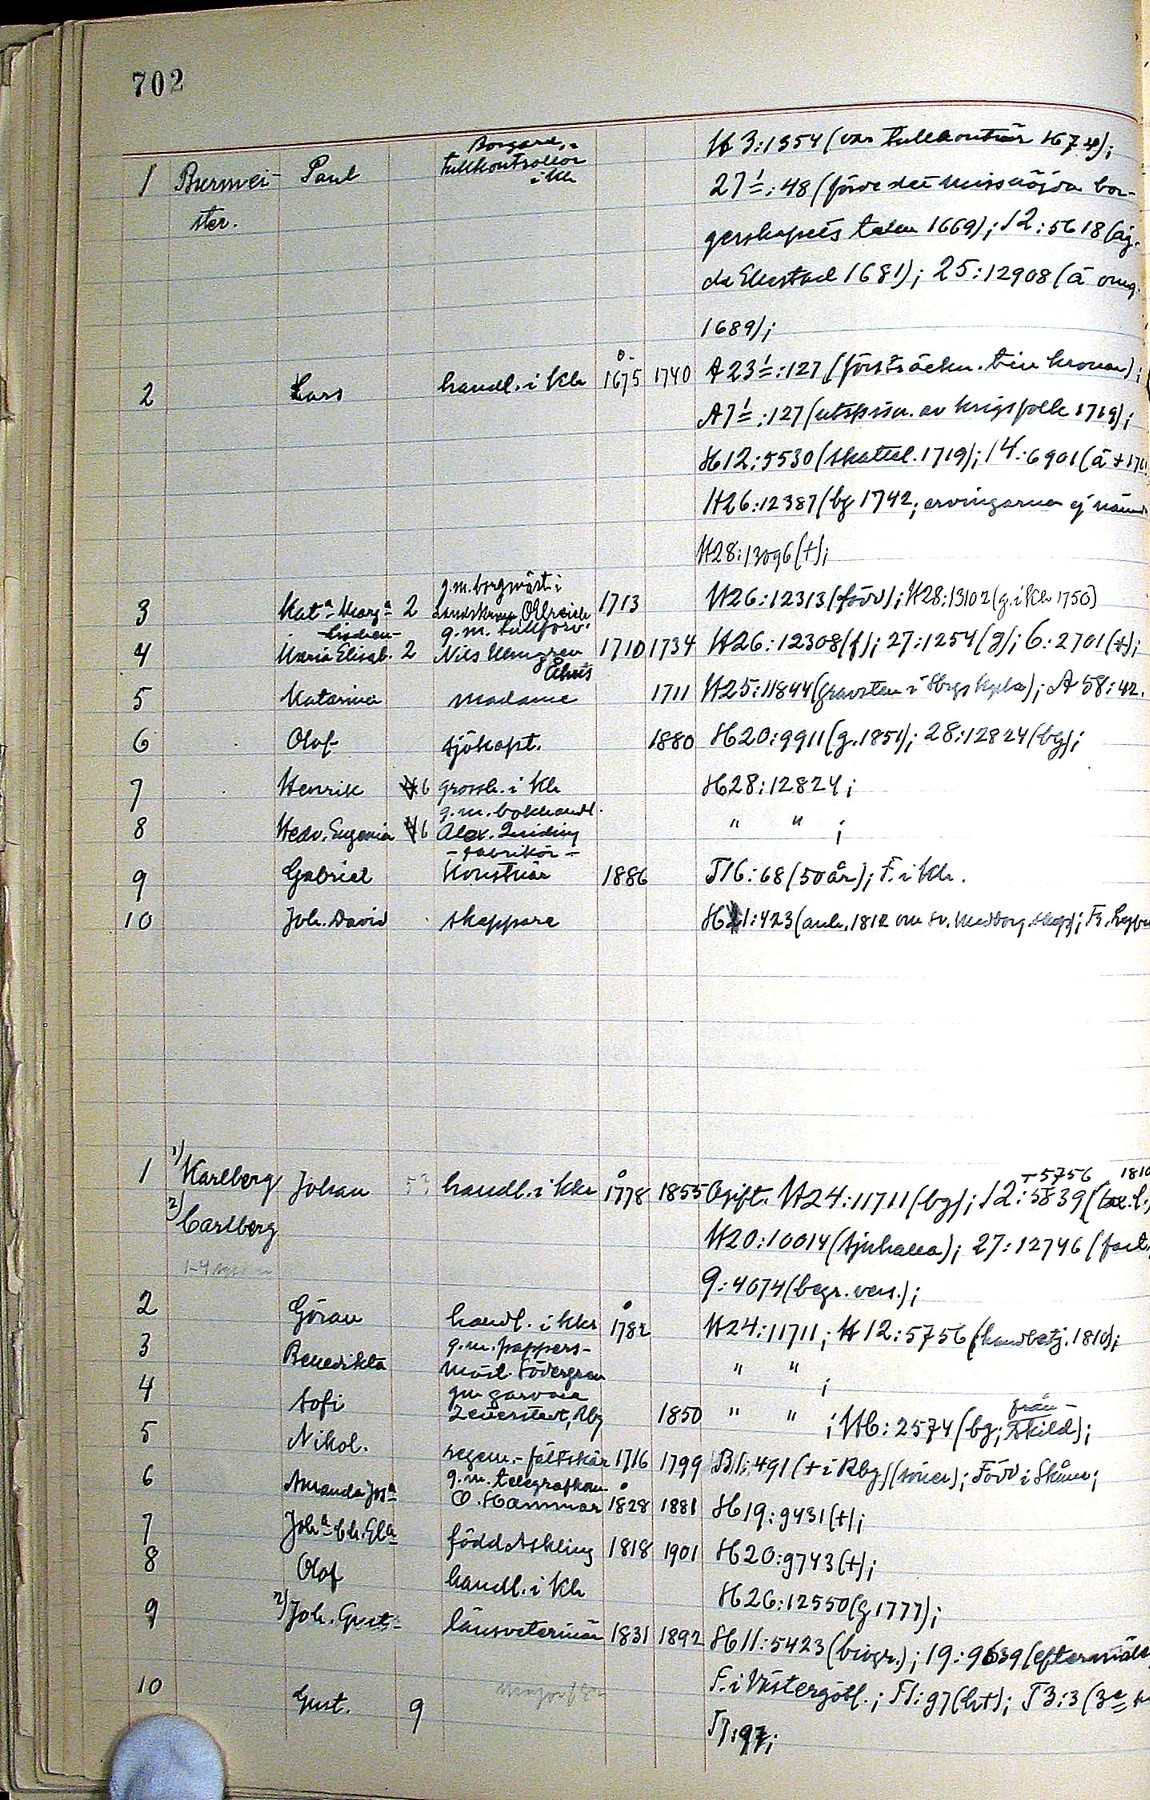 702
1 Burmei- Paul Borgare, tullkontrollör i Khr H 3:1354 (var tullkontrör 1674);
ster. 27½:48 (förde det missnöjda bor-
gerskapets talan 1669); 12:5618 (äg-
de Ekestad 1681); 25:12908 (å omg.
1689);
2 Lars handl. i Khr 1675 1740 A 23½:127 (försträckn. t kronan);
A7½:127 (utskrivn. av krigsfolk 1719);
H12:5530 (skattel. 1719); 14:6901 (å +
H26:12387 (bg 1742; arvingarna ej
H28:13096 (+);
3 Kata Marga 2 g.m. borgmäst. i Landskrona 1713 H26:12313 (född); H28:13102 (g. i Khr 1756)
4 Maria Elisab. 2 g.m. tullförv. Nils 1710 1734 H26:12308 (f); 27:1254 (g); 6:2701 (+);
5 Katarina madame 1711 H25:11844 (gravsten i kyrka); A 58:42.
6 Olof sjökapt. 1880 H20:9911 (g. 1851); 28:12824 (bg);
7 Henrik 6 grossh. i Khr H28:12824;
8 Hedv. Eugenia 6 g.m. bokhandl. Alex. " " ;
9 Gabriel -fabrikör- Konstnär 1886 T16:68 (50 år); F. i Khr.
10 Joh. David skeppare 1:423 (anh. 1812 om sv. medborg.skap);
1 1) Karlberg Johan 53 handl. i Khr 1778 1855 Ogift. H24:11711 (bg); 12:5839 (tax.l.; +5756 1810
2) Carlberg H20:10014 (sjuhalla); 27:12746 (fast.
1-4 9:4074 (begr. vers.);
2 Göran handl. i Khr 1782 H24:11711; H12:5756 (handbetj. 1810);
3 Benedikta g.m. pappers- mäst. Södergren " " ;
4 Sofi gm garvare Zeverstedt, Rby 1850 " " ; H6:2574 (bg; från- skild);
5 Nikol. regem.-fältskär 1716 1799 B1:491 (+ i Rby) (söner); Född i Skåne;
6 Amanda Josa g.m. telegrafkom. O. Hammar 1828 1881 H19:9431 (+);
7 Joha Ch. Ela född Askling 1818 1901 H20:9743 (+);
8 Olof handl. i Khr H26:12550 (g 1777);
9 2) Joh. Gust. länsveterinär 1831 1892 H11:5423 (biogr.); 19:9639 (eftermäle
10 Gust. 9 major F. i Västergötl.; T1:97 (ht); T3:3 (3e
T1:97;